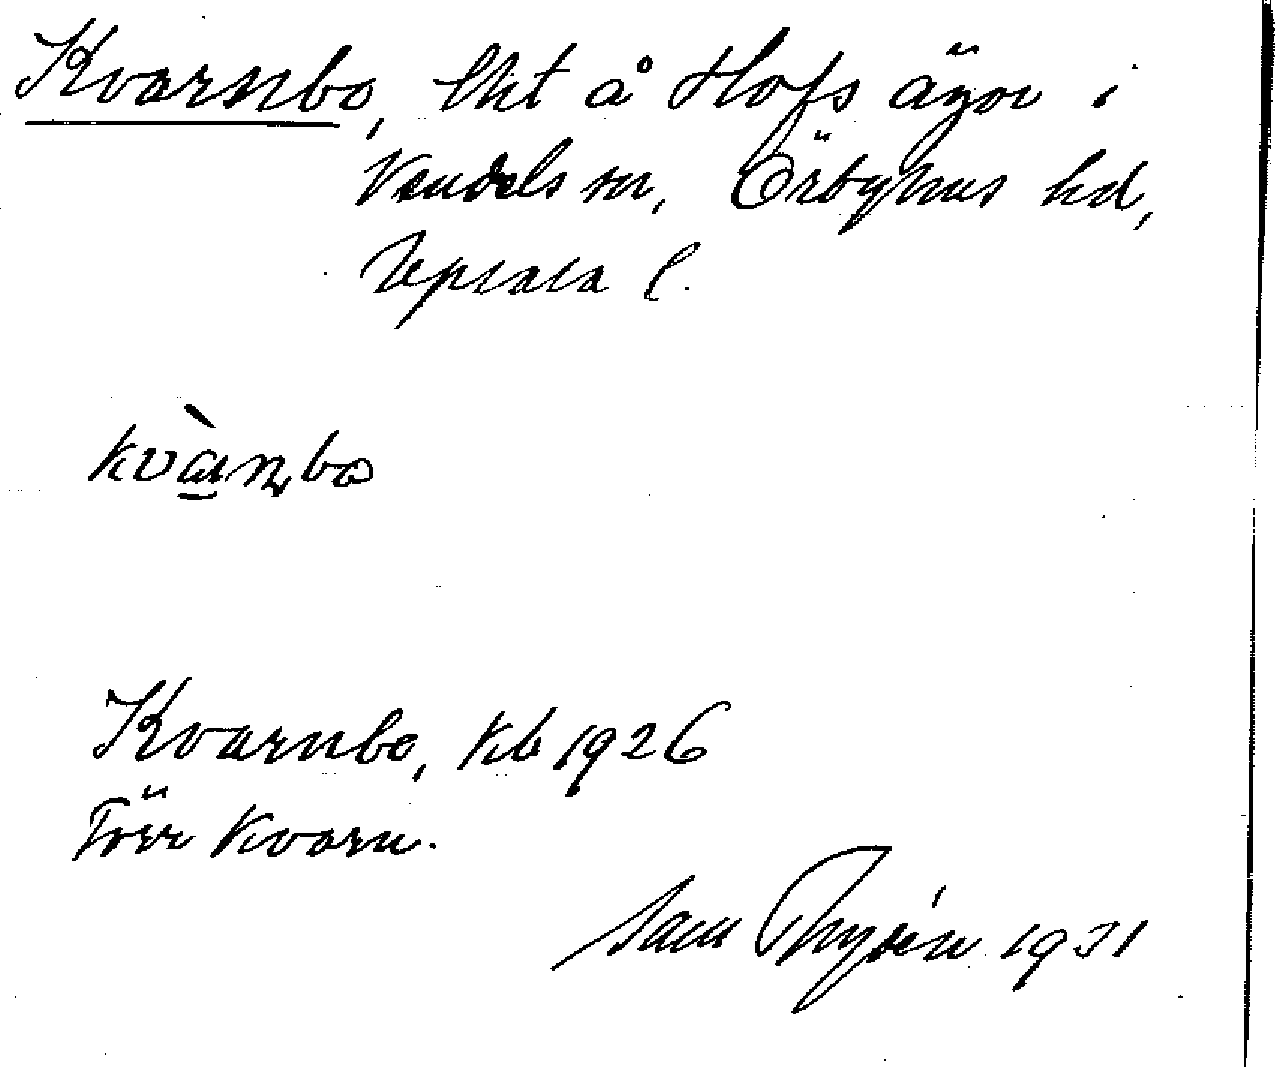 Kvarnbo, lht å Hofs ägor i
Vendels sn, Örbyhus hd,
Uppsala l.
kvàɳbo
Kvarnbo, Kb 1926
Förr Kvarn.
Sam Thysén 1931